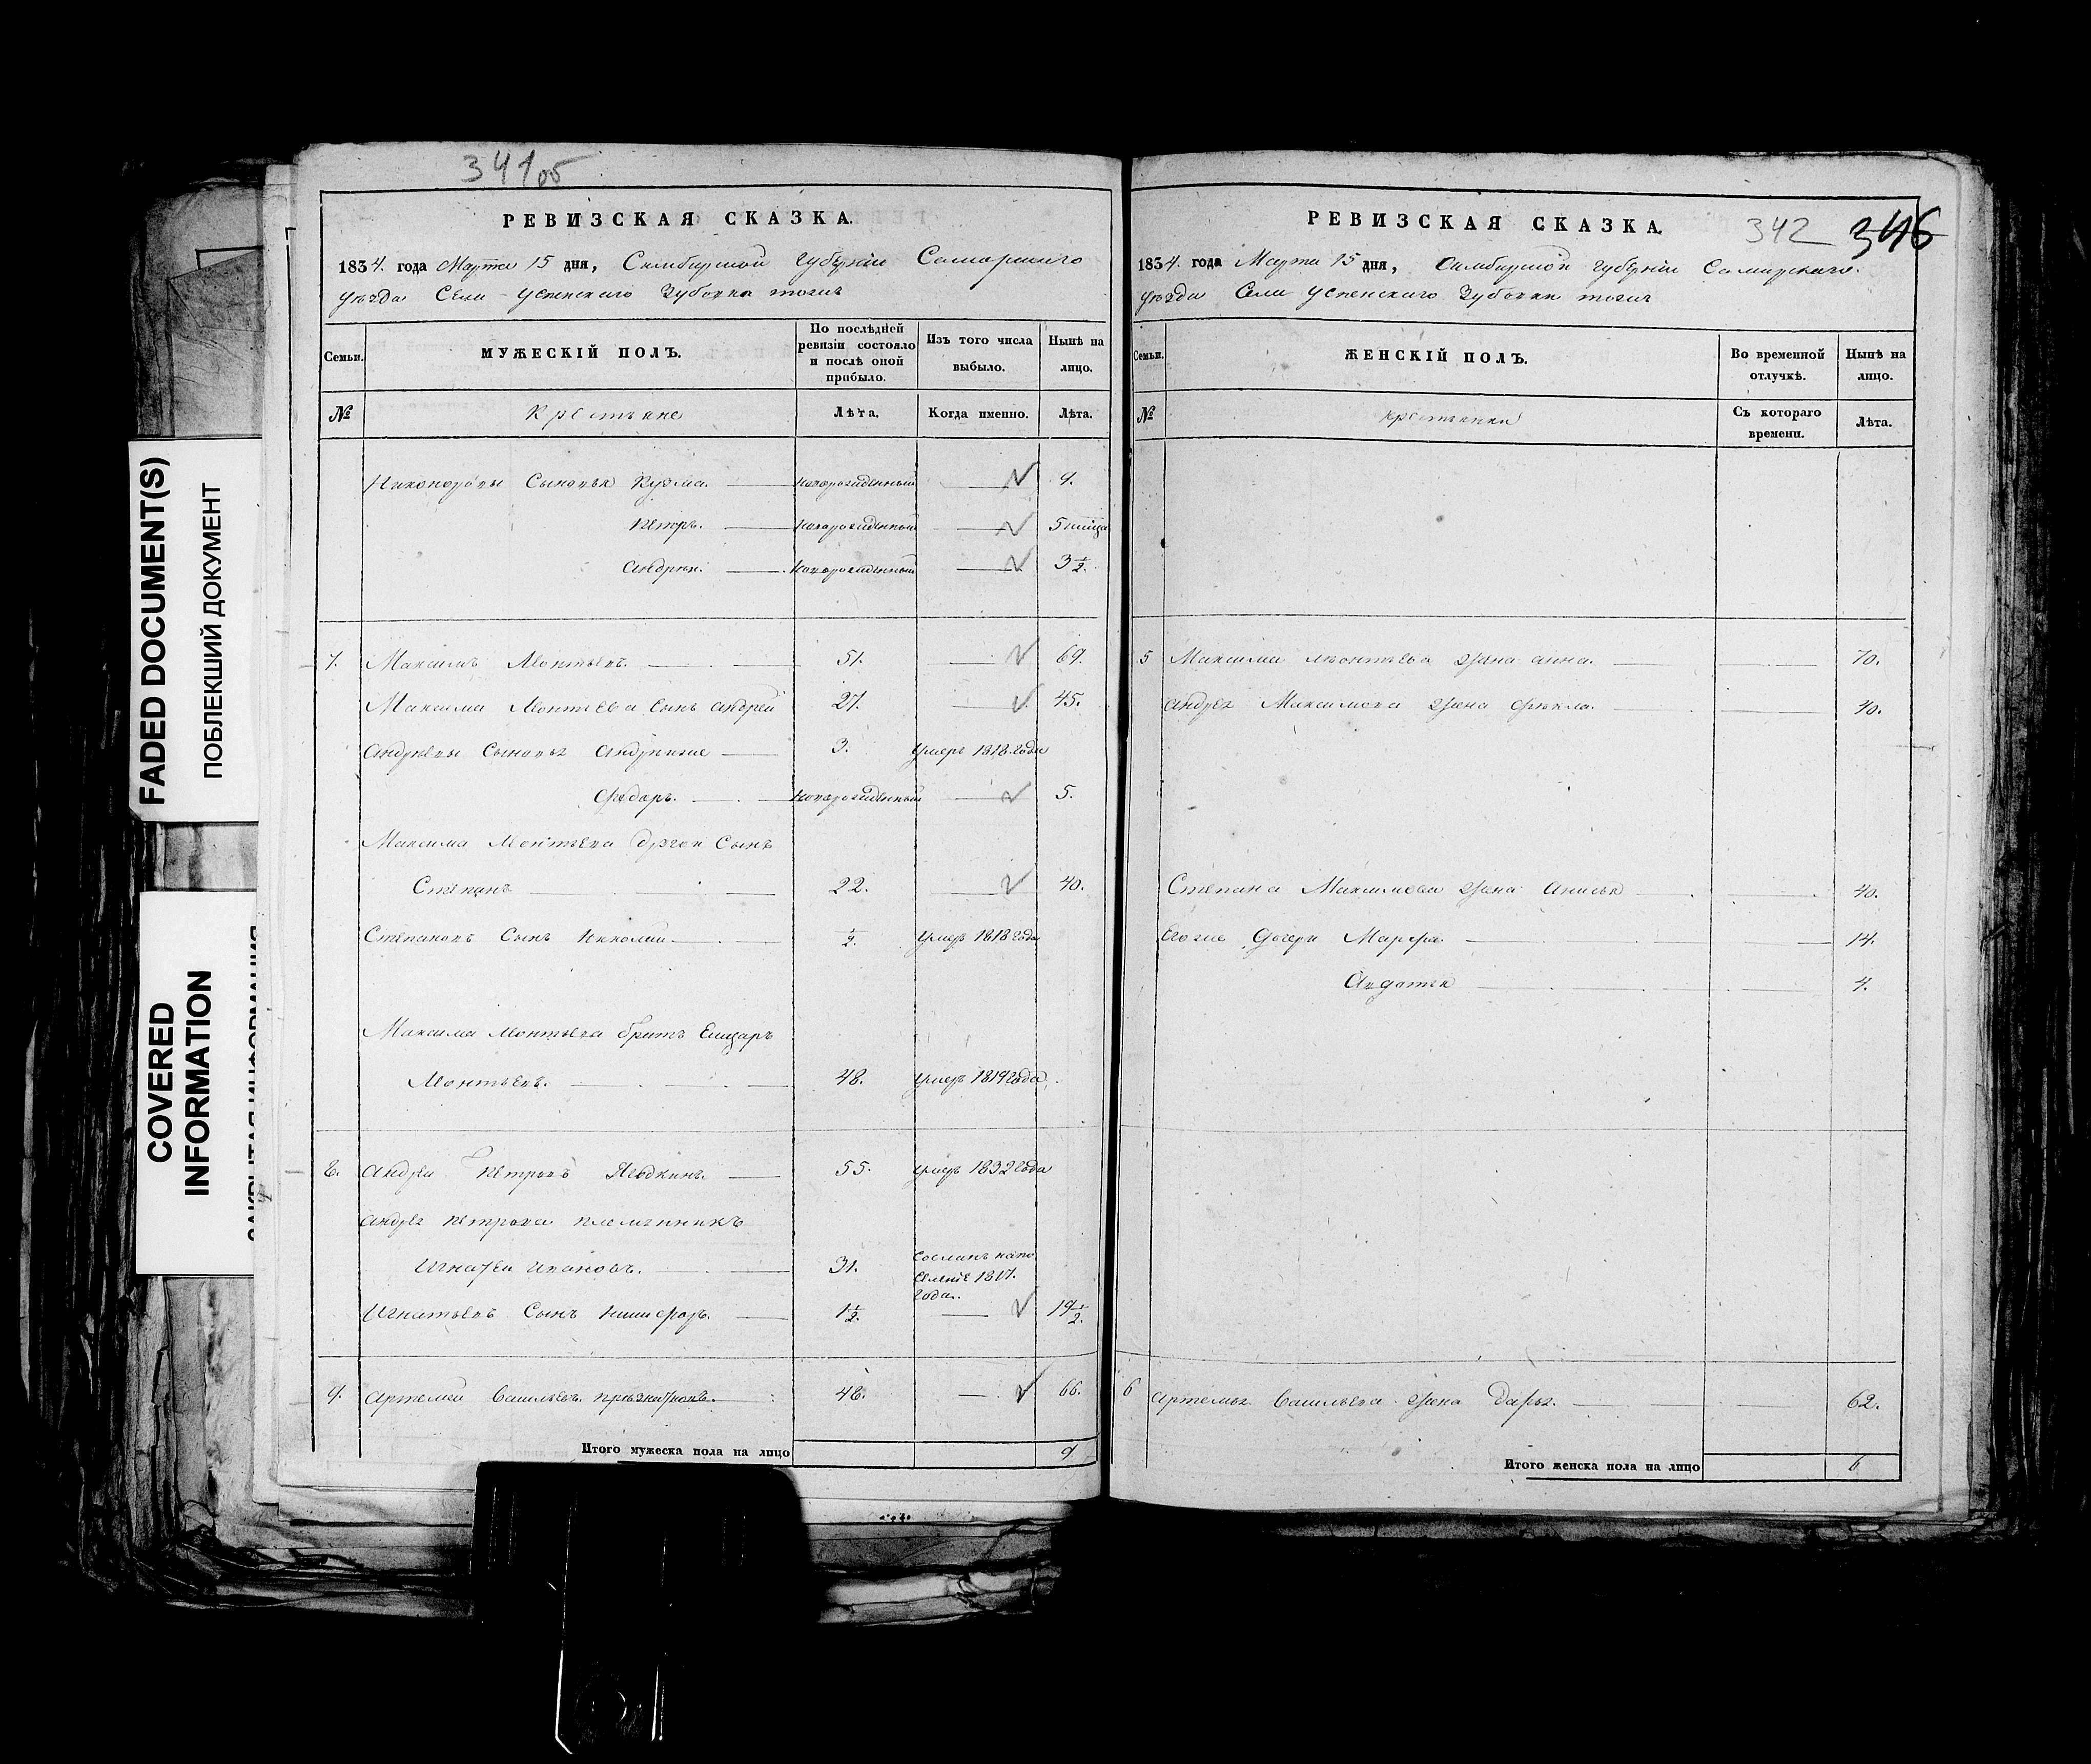 341 об
РЕВИЗСКАЯ СКАЗКА.
1834. года Марта 15 дня, Симбирской Губернии Самарскаго
уѣзда Села Успенскаго Зубовка тожъ
Семьи.
МУЖЕСКІЙ ПОЛЪ.
По послѣдней ревизіи состояло и послѣ оной прибыло.
Изъ того числа выбыло.
Нынѣ на лицо.
№
Крестьяне
Лѣта.
Когда именно.
Лѣта.
Сыновья Кузма. новорожденный 9.
Петръ. новорожденный 5
Андреи. новорожденный 3 1/2.
7. Максимъ Леонтьевъ. 51. 69.
Максима Леонтьева Сынъ Андрей 27. 45.
Андреевы Сыновья 3. умеръ 1818 года
Федаръ. новорожденный 5.
Максима Леонтьева Сынъ
Степанъ 22. 40.
Степановъ Сынъ Николай 1/2. умеръ 1818 года
Максима Леонтьева братъ
Леонтьевъ. 48. умеръ 1819 года
8. Андрей Петровъ 55. умеръ 1832 года
Андрея Петрова племянникъ
Игнатей Ивановъ. 31. Сосланъ на по
селеніе 1817.
года.
Игнатьевъ Сынъ Никифоръ. 1 1/2. 19 1/2.
9. Артемей Васильевъ 48. 66.
Итого мужеска пола на лицо 9
РЕВИЗСКАЯ СКАЗКА.
342 346
1834. года Марта 15 дня, Симбирской Губерніи Самарскаго.
уѣзда Села Успенскаго Зубовки тожъ
Семьи.
ЖЕНСКІЙ ПОЛЪ.
Во временной отлучкѣ.
Нынѣ на лицо.
№
крестьянки
Съ котораго времени.
Лѣта.
5 Максима Леонтьева жена Анна. 70.
Андрея Максимова жена Фекла. 40.
Степана Максимова жена Анисья 40.
Его же Дочери Марфа 14.
Авдотья 4.
6 Артемья Васильева жена Дарья. 62.
Итого женска пола на лицо 6
FADED DOCUMENT(S)
ПОБЛЕКШИЙ ДОКУМЕНТ
COVERED
INFORMATION